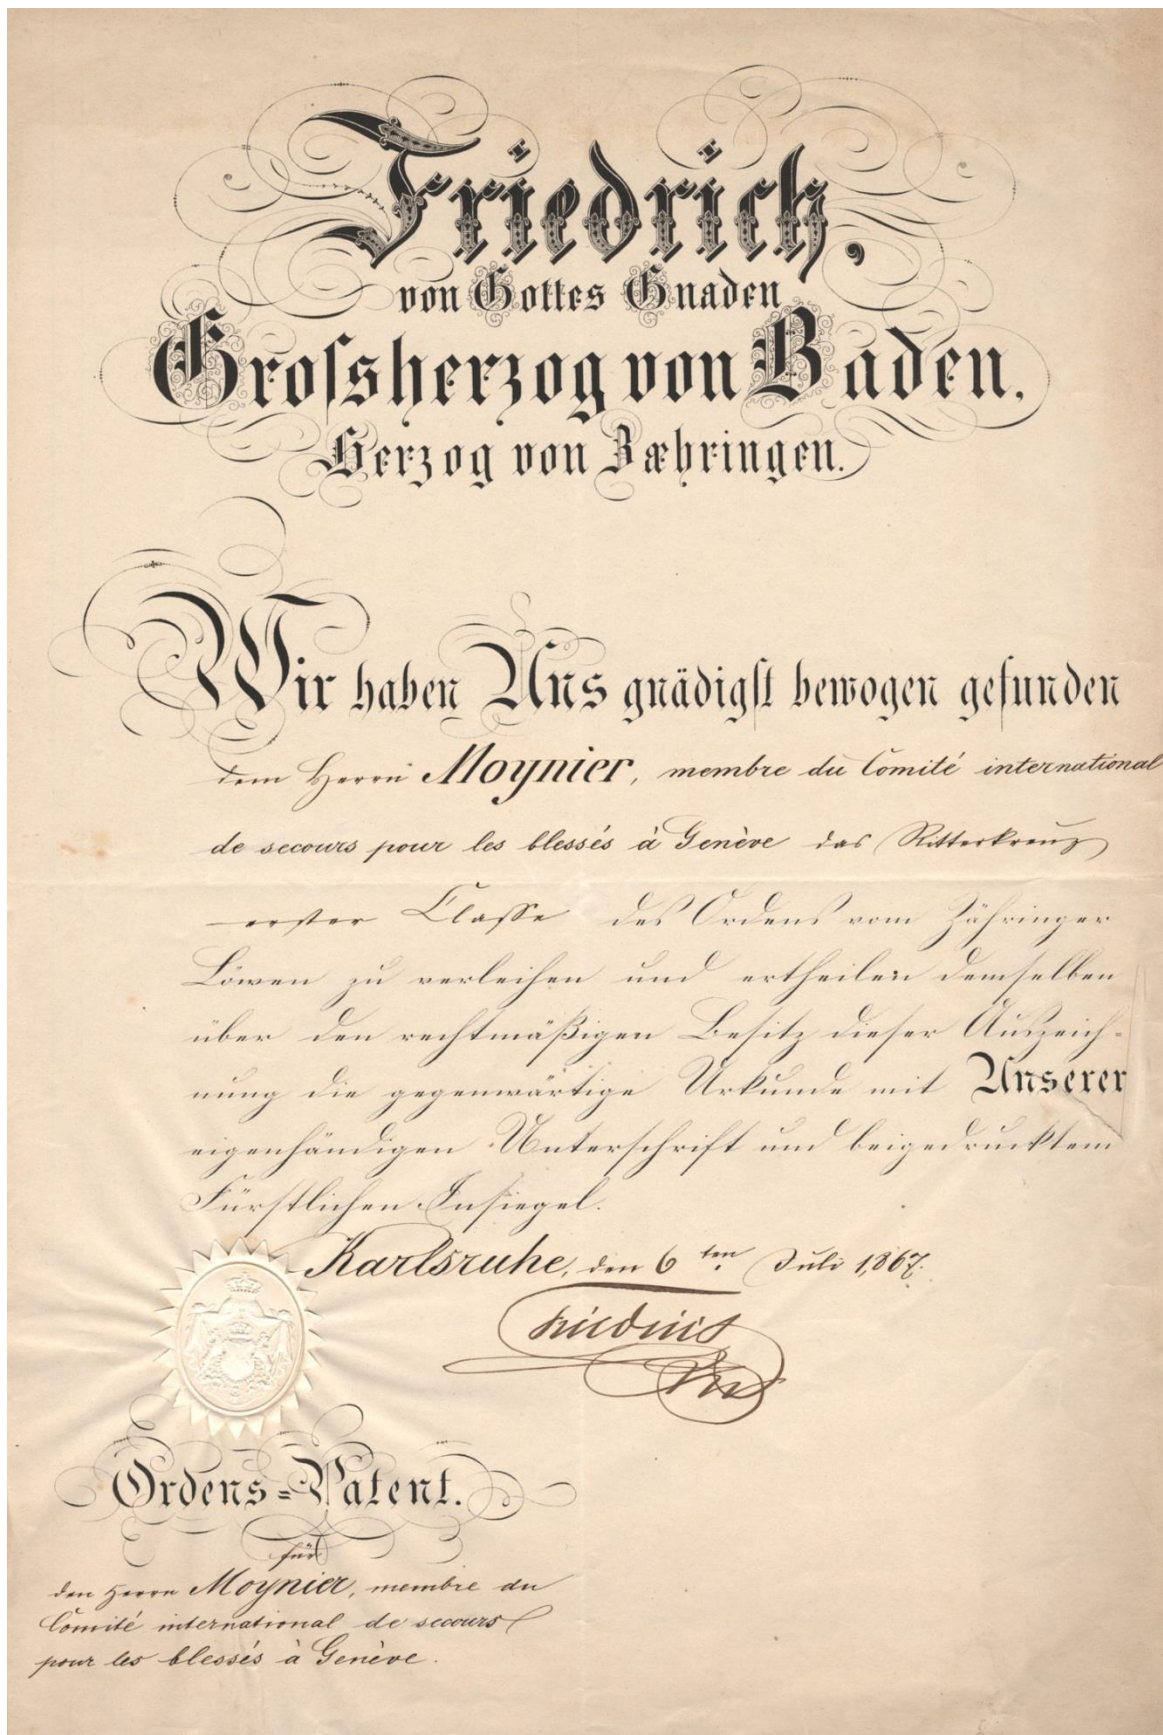 Friedrich,
von Gottes Gnaden
Grossherzog von Baden,
Herzog von Zæhringen.
Wir haben Uns gnädigst bewogen gefunden
dem Herrn Moynier, membre du Comité international
de secours pour les blessés à Genève das Ritterkreuz
erster Classe des Ordens vom Zähringer
Löwen zu verleihen und ertheilen demselben
über den rechtmäßigen Besitz dieser Auszeich-
nung die gegenwärtige Urkunde mit Unserer
eigenhändigen Unterschrift und beigedrucktem
Fürstlichen Insiegel.
Karlsruhe, den 6ten Juli 1867.
Friedrich
Ordens=Patent.
für
den Herrn Moynier, membre du
Comité international de secours
pour les blessés à Genève.